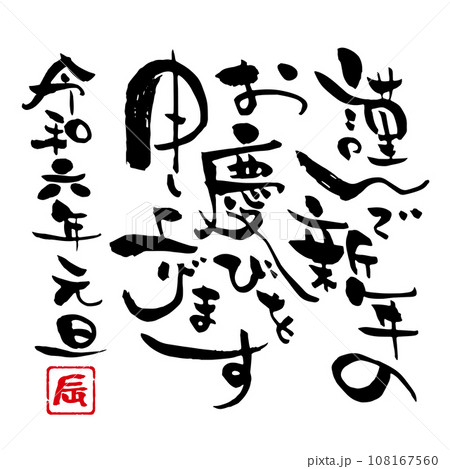 謹んで新年の
お慶びを
申し上げます
令和六年元旦
辰
pixta.jp - 108167560